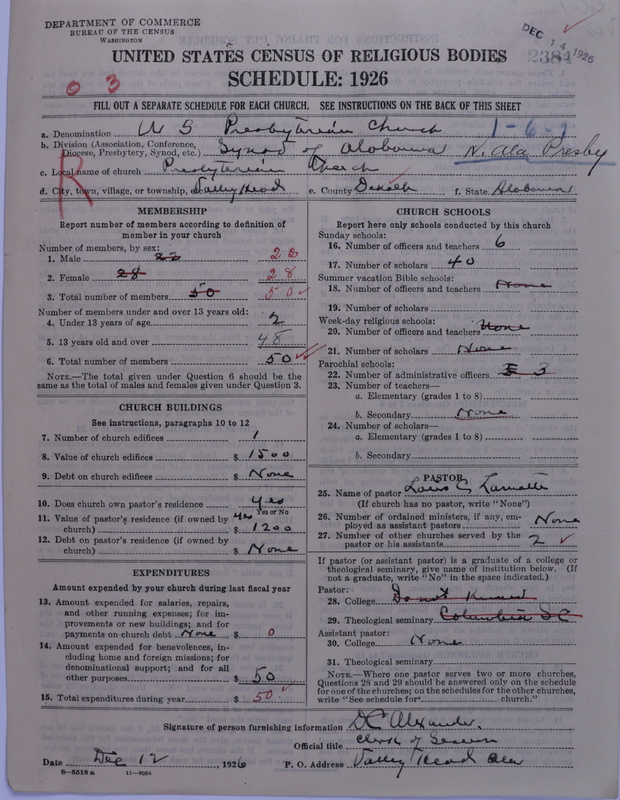 DEPARTMENT OF COMMERCE
BUREAU OF THE CENSUS
WASHINGTON
DEC 14 1926
2384
UNITED STATES CENSUS OF RELIGIOUS BODIES
SCHEDULE: 1926
0 3
FILL OUT A SEPARATE SCHEDULE FOR EACH CHURCH. SEE INSTRUCTIONS ON THE BACK OF THIS SHEET
a. Denomination U S Presbyterian Church 1-6-1
b. Division (Association, Conference, Diocese, Presbytery, Synod, etc.) Synod of Alabama N. Ala Presby
R
c. Local name of church Presbyterian Church
d. City, town, village, or township, etc. Valley Head e. County Dekalb f. State Alabama
MEMBERSHIP
Report number of members according to definition of member in your church
Number of members, by sex:
1. Male 22 22
2. Female 28 28
3. Total number of members 50 50
Number of members under and over 13 years old:
4. Under 13 years of age 2
5. 13 years old and over 48
6. Total number of members 50
NOTE.—The total given under Question 6 should be the same as the total of males and females given under Question 3.
CHURCH BUILDINGS
See instructions, paragraphs 10 to 12
7. Number of church edifices 1
8. Value of church edifices $ 1500
9. Debt on church edifices $ None
10. Does church own pastor's residence yes
Yes or No
11. Value of pastor's residence (if owned by church) yes $ 1200
12. Debt on pastor's residence (if owned by church) $ None
EXPENDITURES
Amount expended by your church during last fiscal year
13. Amount expended for salaries, repairs, and other running expenses; for improvements or new buildings; and for payments on church debt None $ 0
14. Amount expended for benevolences, including home and foreign missions; for denominational support; and for all other purposes $ 50
15. Total expenditures during year $ 50
CHURCH SCHOOLS
Report here only schools conducted by this church
Sunday schools:
16. Number of officers and teachers 6
17. Number of scholars 40
Summer vacation Bible schools:
18. Number of officers and teachers None
19. Number of scholars
Week-day religious schools:
20. Number of officers and teachers None
21. Number of scholars None
Parochial schools:
22. Number of administrative officers 3
23. Number of teachers—
a. Elementary (grades 1 to 8)
b. Secondary None
24. Number of scholars—
a. Elementary (grades 1 to 8)
b. Secondary
PASTOR
25. Name of pastor Louis C Lamotte
(If church has no pastor, write "None")
26. Number of ordained ministers, if any, employed as assistant pastors None
27. Number of other churches served by the pastor or his assistants 2
If pastor (or assistant pastor) is a graduate of a college or theological seminary, give name of institution below. (If not a graduate, write "No" in the space indicated.)
Pastor:
28. College Do not Know
29. Theological seminary Columbia SC
Assistant pastor:
30. College None
31. Theological seminary
NOTE.—Where one pastor serves two or more churches, Questions 28 and 29 should be answered only on the schedule for one of the churches; on the schedules for the other churches, write "See schedule for church."
Signature of person furnishing information D C Alexander
Official title Clerk of Session
Date Dec 12 1926 P. O. Address Valley Head Ala
8—5518 a 11—9054